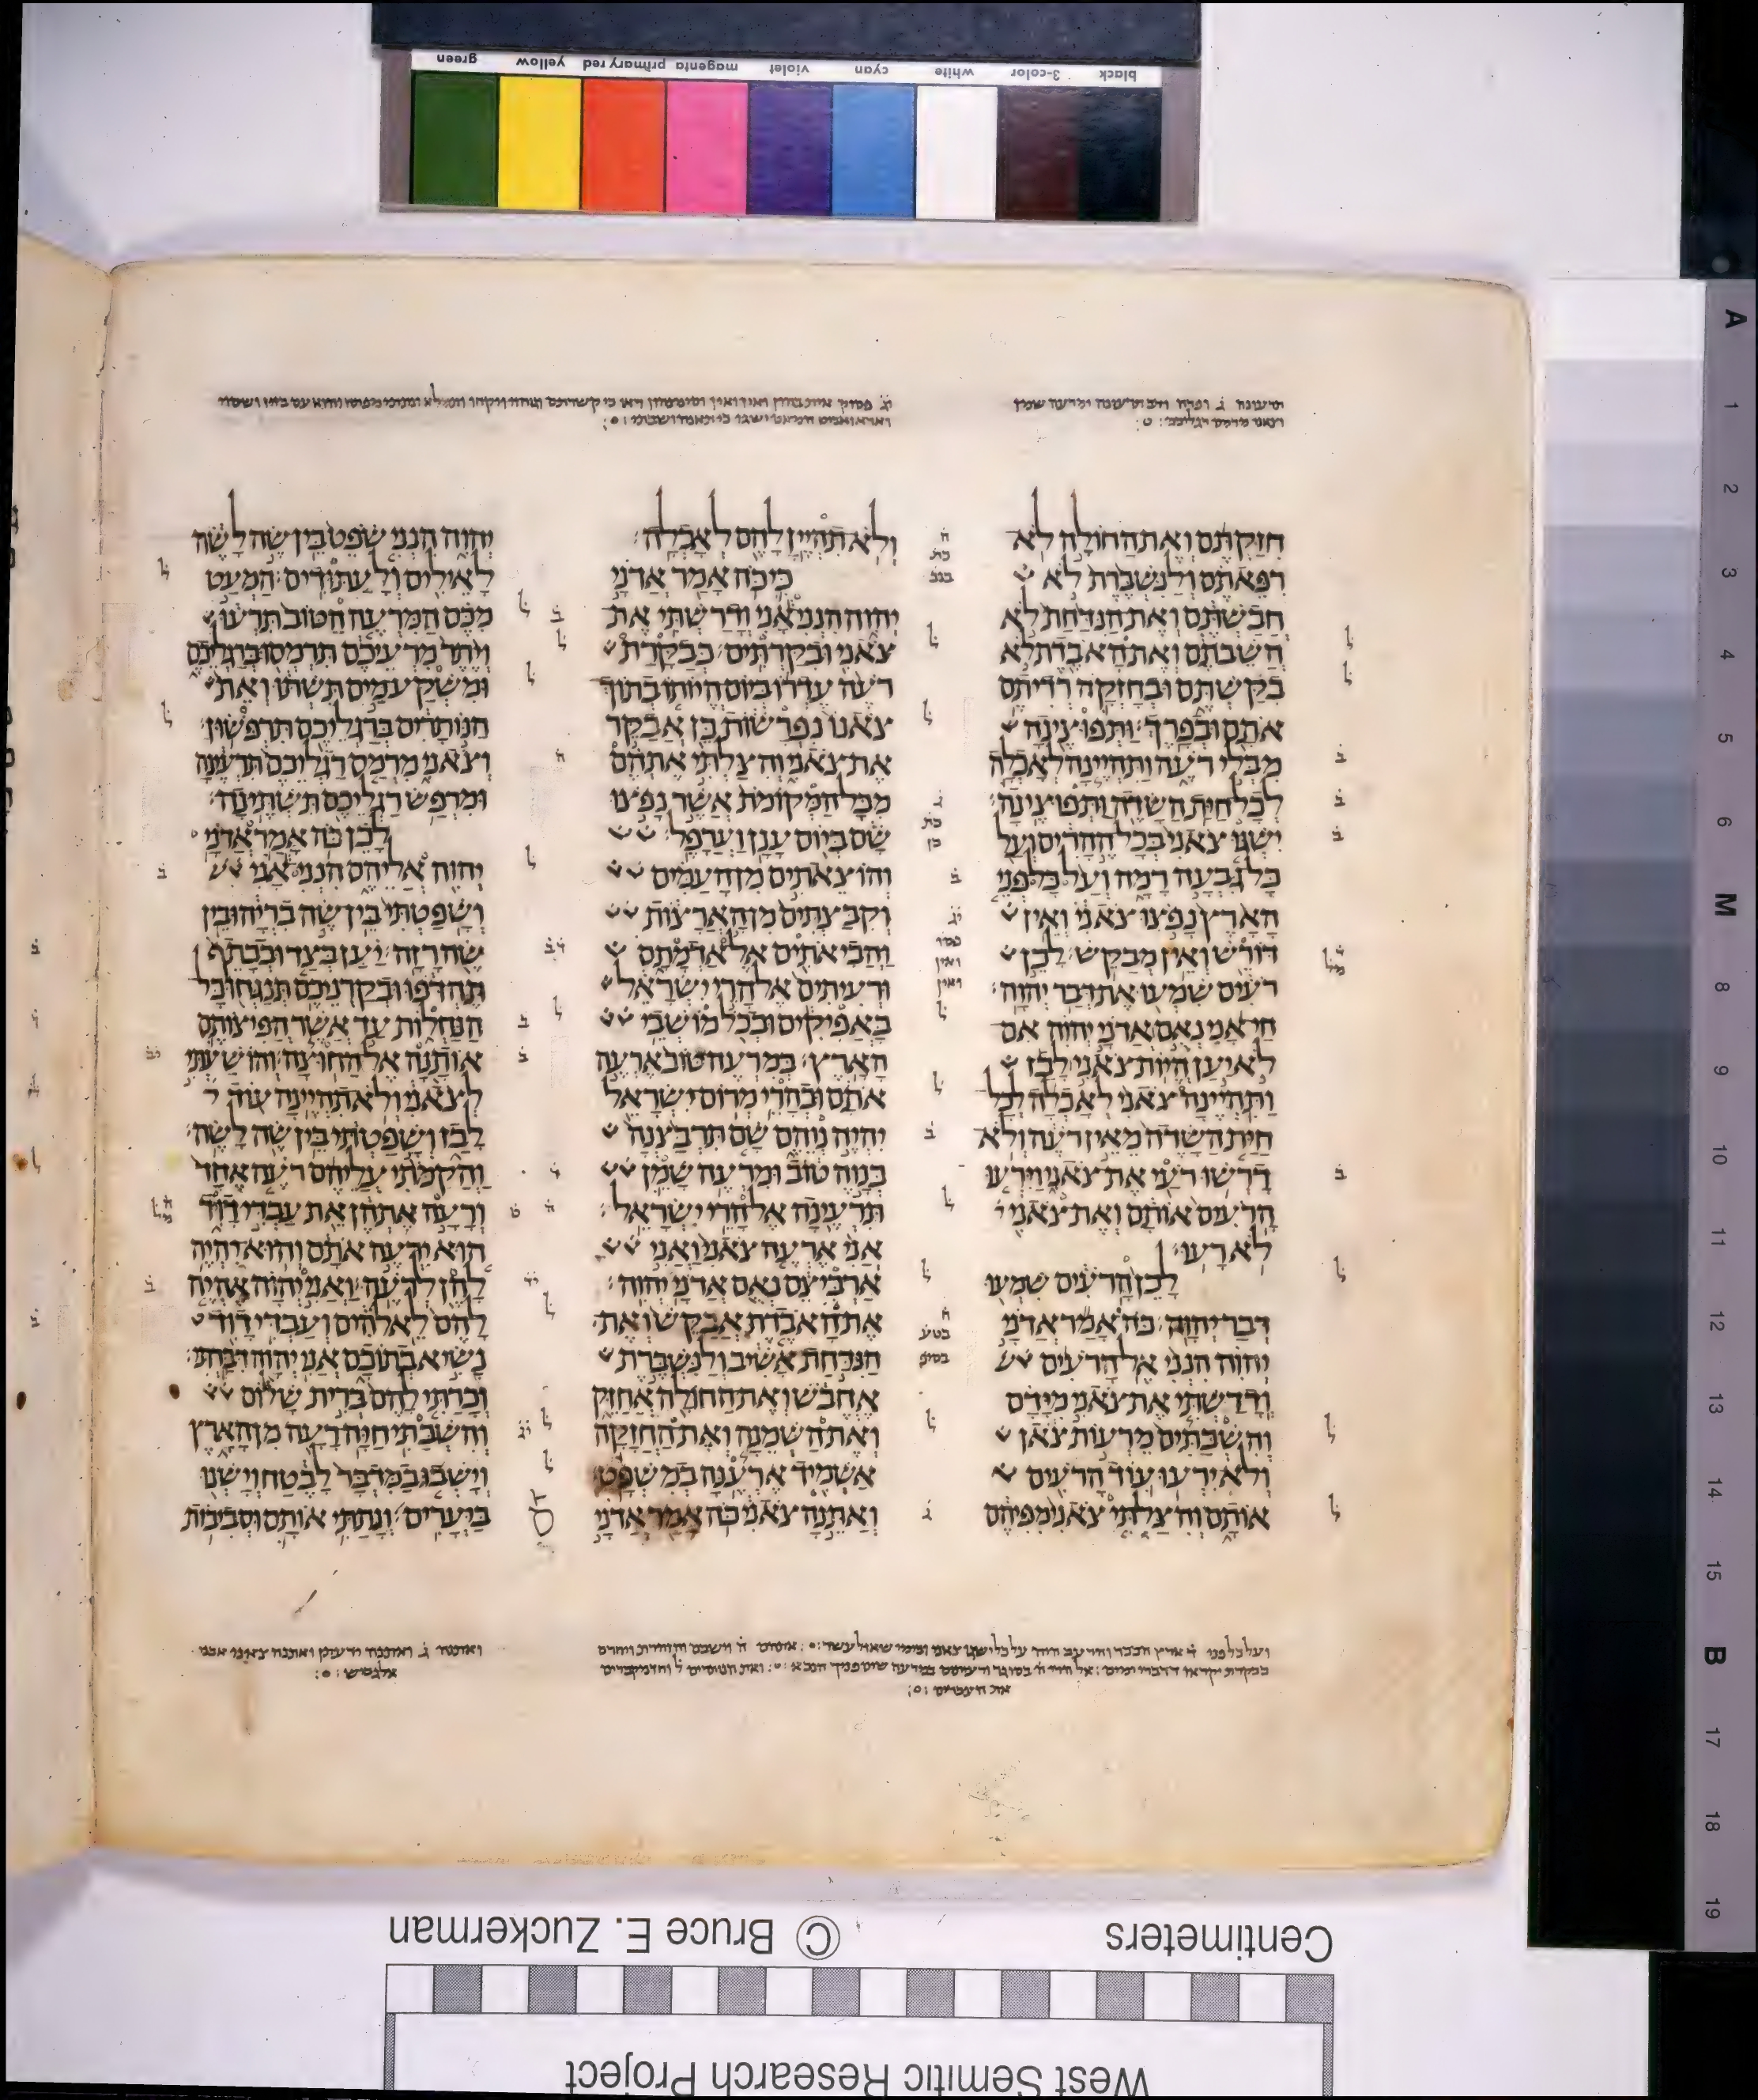 green yellow primary red magenta violet cyan white 3-color black
חזקתם ואת החולה לא
רפאתם ולנשברת לא
חבשתם ואת הנדחת לא
השבתם ואת האבדת לא
בקשתם ובחזקה רדיתם
אתם ובפרך׃ ותפוצינה
מבלי רעה ותהיינה לאכלה
לכל חית השדה ותפוצינה׃
ישגו צאני בכל ההרים ועל
כל גבעה רמה ועל כל פני
הארץ נפצו צאני ואין
דורש ואין מבקש׃ לכן
רעים שמעו את דבר יהוה׃
חי אני נאם אדני יהוה אם
לא יען היות צאני לבז
ותהיינה צאני לאכלה לכל
חית השדה מאין רעה ולא
דרשו רעי את צאני וירעו
הרעים אותם ואת צאני
לא רעו׃
לכן הרעים שמעו
דבר יהוה׃ כה אמר אדני
יהוה הנני אל הרעים
ודרשתי את צאני מידם
והשבתים מרעות צאן
ולא ירעו עוד הרעים
אותם והצלתי צאני מפיהם
ולא תהיין להם לאכלה׃
כי כה אמר אדני
יהוה הנני אני ודרשתי את
צאני ובקרתים׃ כבקרת
רעה עדרו ביום היותו בתוך
צאנו נפרשות כן אבקר
את צאני והצלתי אתהם
מכל המקומת אשר נפצו
שם ביום ענן וערפל׃
והוצאתים מן העמים
וקבצתים מן הארצות
והביאתים אל אדמתם
ורעיתים אל הרי ישראל
באפיקים ובכל מושבי
הארץ׃ במרעה טוב ארעה
אתם ובהרי מרום ישראל
יהיה נוהם שם תרבצנה
בנוה טוב ומרעה שמן
תרעינה אל הרי ישראל׃
אני ארעה צאני ואני
ארביצם נאם אדני יהוה׃
את האבדת אבקש ואת
הנדחת אשיב ולנשברת
אחבש ואת החולה אחזק
ואת השמנה ואת החזקה
אשמיד ארענה במשפט׃
ואתנה צאני כה אמר אדני
יהוה הנני שפט בין שה לשה
לאילים ולעתודים׃ המעט
מכם המרעה הטוב תרעו
ויתר מרעיכם תרמסו ברגליכם
ומשקע מים תשתו ואת
הנותרים ברגליכם תרפשון׃
וצאני מרמס רגליכם תרעינה
ומרפש רגליכם תשתינה׃
לכן כה אמר אדני
יהוה אליהם הנני אני
ושפטתי בין שה בריה ובין
שה רזה׃ יען בצד ובכתף
תהדפו ובקרניכם תנגחו כל
הנחלות עד אשר הפיצותם
אותנה אל החוצה׃ והושעתי
לצאני ולא תהיינה עוד
לבז ושפטתי בין שה לשה׃
והקמתי עליהם רעה אחד
ורעה אתהן את עבדי דויד
הוא ירעה אתם והוא יהיה
להן לרעה׃ ואני יהוה אהיה
להם לאלהים ועבדי דוד
נשיא בתוכם אני יהוה דברתי׃
וכרתי להם ברית שלום
והשבתי חיה רעה מן הארץ
וישבו במדבר לבטח וישנו
ביערים׃ ונתתי אותם וסביבות
Centimeters © Bruce E. Zuckerman
West Semitic Research Project
A 1 2 3 4 5 6 M 8 9 10 11 12 13 14 15 B 17 18 19